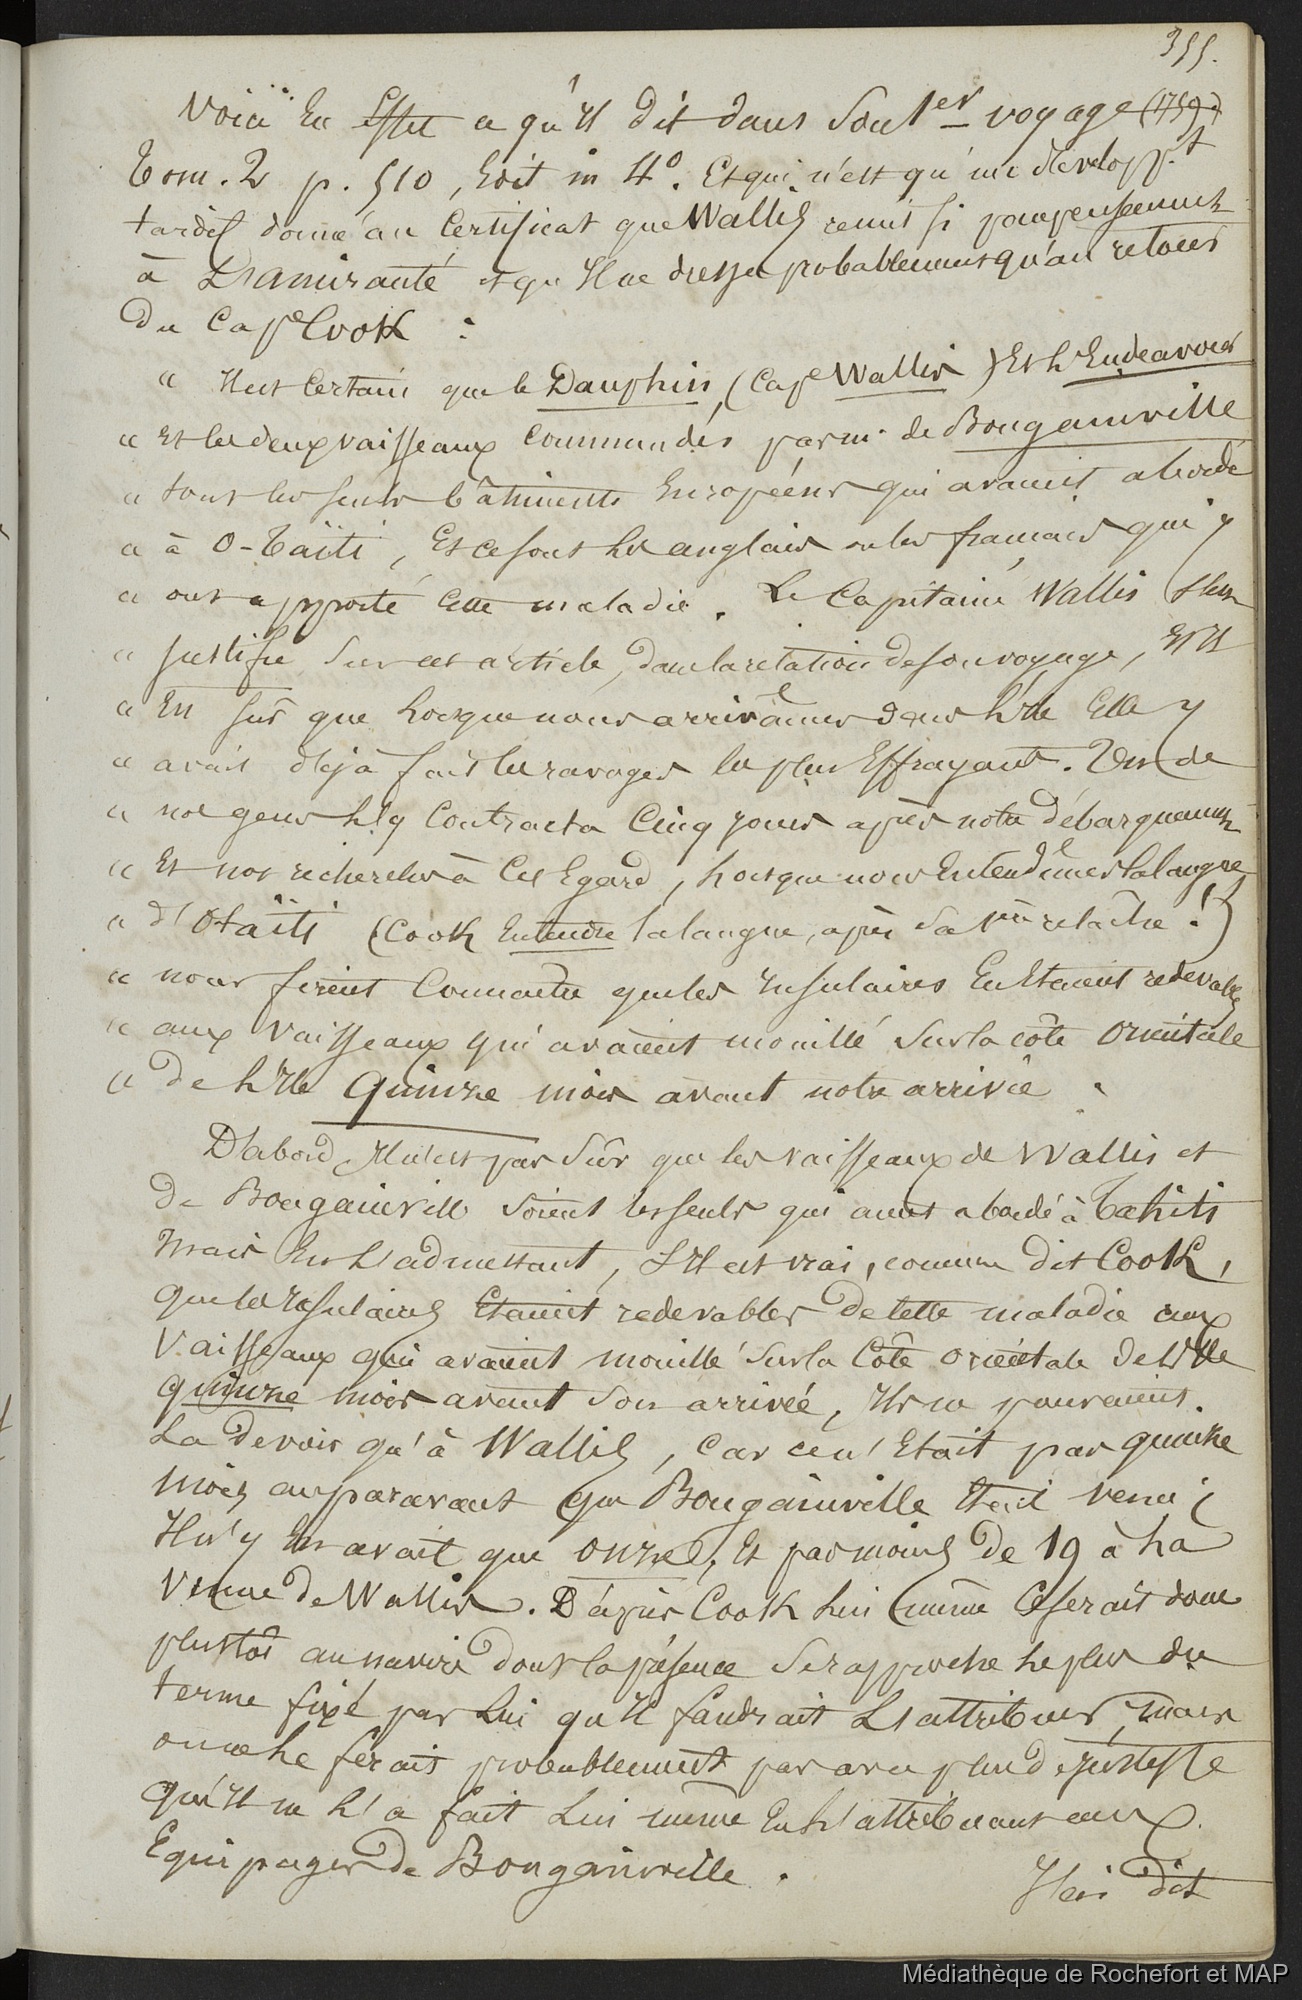 355.
Voici En Effet ce qu'Il dit dans Son 1er voyage (1769.)
Tom. 2 p. 510, Edit in 4°. Et qui n'est qu'un développt
tardif donné au Certificat que Wallis remit si pompeusement
à L'amirauté et qu'Il ne dressa probablement qu'au retour
du Cape Cook :
" Il est Certain que le Dauphin, (Cape Wallis) Et L'Endeavour
" Et les deux vaisseaux Commandés par m. de Bougainville
" sont les seuls bâtiments Européens qui avaient abordé
" à O-Taïti, Et ce sont les anglais ou les français qui y
" ont apporté cette maladie. Le Capitaine Wallis s'est
" justifié Sur cet article, dans la relation de son voyage, Et Il
" En sûr que Lorsque nous arrivâmes dans L'Ile Elle y
" avait déjà fait les ravages les plus Effrayant. Un de
" nos gens L'y Contracta Cinq jours après notre débarquement
" Et nos recherches à Cet Egard, Lorsque nous Entendîmes la langue
" d'Otaïti (Cook Entendre la langue, après Sa 1ère relâche !!)
" nous firent Connaître que les Insulaires En Etaient redevables
" aux Vaisseaux qui avaient mouillé Sur la côte Orientale
" de L'Ile Quinze mois avant notre arrivée .
D'abord, Il n'est pas Sûr que les vaisseaux de Wallis et
de Bougainville Soient les seuls qui aient abordé à Tahiti
Mais En L'admettant, S'Il est vrai, comme dit Cook,
que les Insulaires Etaient redevables de cette maladie aux
Vaisseaux qui avaient mouillé Sur la Côte orientale de L'Ile
quinze mois avant Son arrivée, Ils ne pouvaient
La devoir qu'à Wallis, Car ce n'Etait pas quinze
mois auparavant que Bougainville Etait venu ;
Il n'y En avait que onze, Et pas moins de 19 à La
Venue de Wallis. D'après Cook Lui même Ce serait donc
plustôt au navire dont la présence Se rapproche le plus du
terme fixé par Lui qu'Il faudrait L'attribuer, mais
on ne le ferait probablement pas avec plus de justesse
qu'Il ne L'a fait Lui même En L'attribuant aux
Equipages de Bougainville .
Il en dit
Médiathèque de Rochefort et MAP